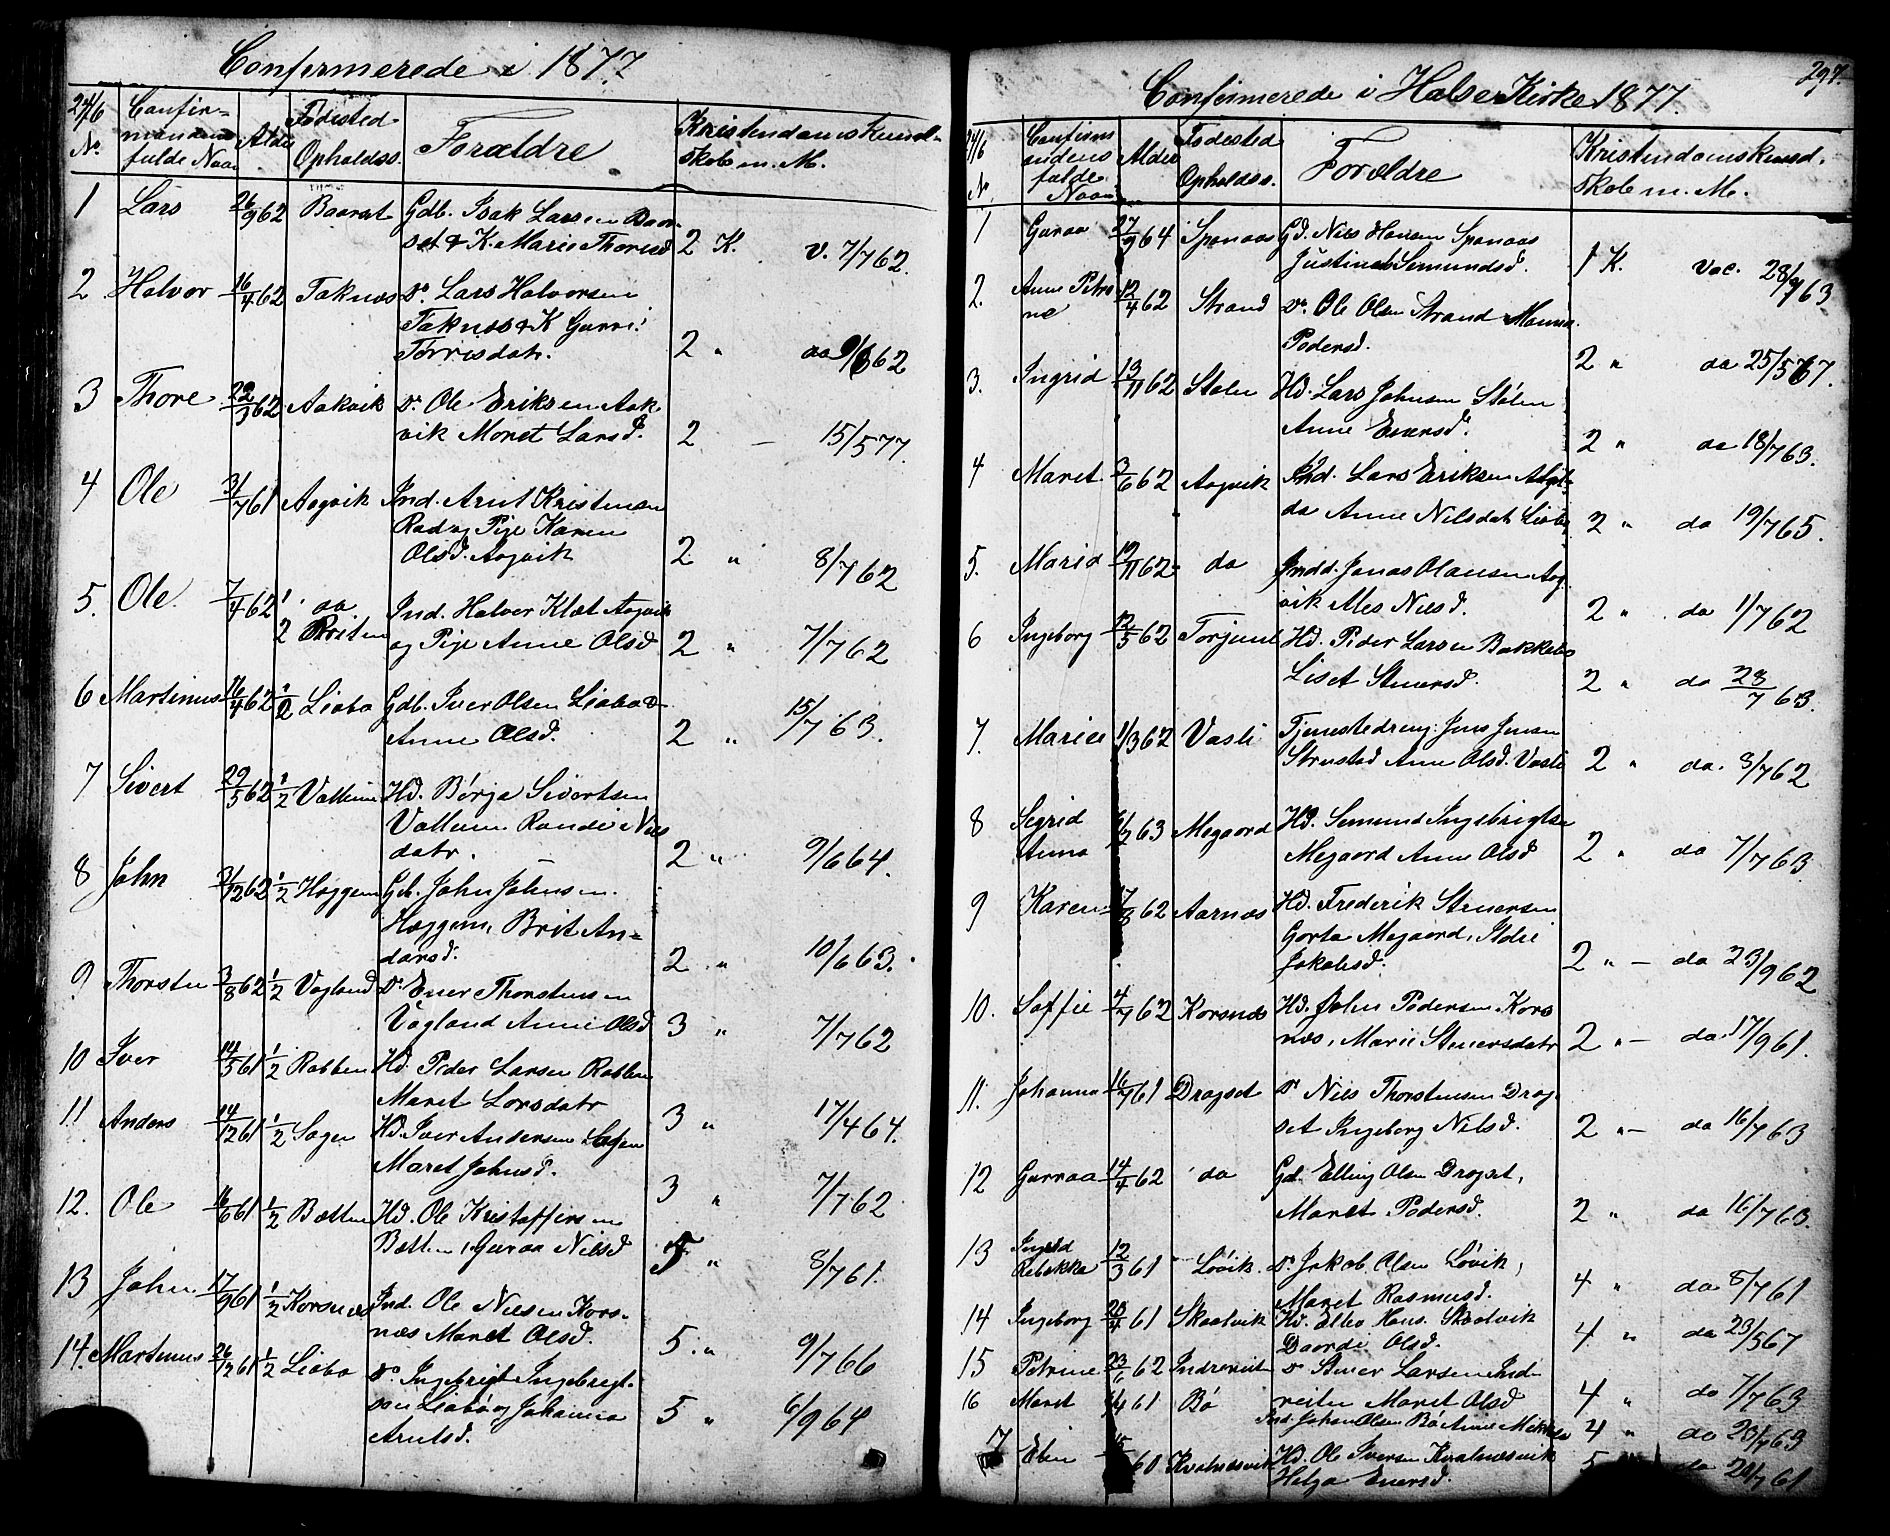 Confirmerede i 1877
24/6
No.
Confir-
mandens
fulde Navn
Alder
Fødested
Opholdss.
Forældre
Kristendomskund-
skab m. M.
1 Lars 26/9 62 Baarset Gdb. Isak Larsen Baar-
set & K. Marie Thoresd 2 K. v. 7/7 62.
2 Halvor 16/4 62 Taknæs Do. Lars Halvorsen
Taknæs & K Gurri
Torrisdatr. 2 " do 9/8 62
3 Thore 22/3 62 Aakvik Do. Ole Eriksen Aak
vik Maret Larsd. 2 — 15/5 77.
4 Ole 3/7 61 Aagvik Ind. Arnt Kristensen
Rad og Pige Karen
Olsd. Aagvik 2 " 8/7 62
5. Ole. 7/4 62 1/2 do Ind. Halvor Klæt Aagvik
og Pige Anne Olsd 2 " 7/7 62
6 Martinus 16/4 62 1/2 Liabø Gdb. Iver Olsen Liabø &
Anne Olsd. 2 " 15/7 63.
7 Sivert 29/5 62 1/2 Vullum Hd. Børge Sivertsen
Vullum Randi Nils
datr. 2 " 9/6 64.
8 John 3/12 62 1/2 Hæggem Gdb. John Johnsen
Hæggem, Brit An-
darsd. 2 " 10/6 63.
9 Thorsten 3/8 62 1/2 Vagland Do Ener Thorstensen
Vagland Anne Olsd 3 " 7/7 62
10 Iver 14/5 61 1/2 Rabben Hd. Peder Larsen Rabben
Maret Larsdatr 3 " 17/4 64.
11 Anders 14/12 61 1/2 Sagen Hd. Iver Andersen Sagen
Maret Johnsd. 3 " 7/7 62
12. Ole 16/6 61 1/2 Bætten Hd. Ole Kristoffersen
Bætten, Guraa Nilsd 5 " 8/7 61.
13 John 17/9 61 1/2 Korsnæs Ind. Ole Nilsen Kors-
næs Maret Olsd. 5 " 9/7 66
14. Martinus 26/12 61 1/2 Liabø Do Ingebrigt Ingebrigt-
sen Liabø og Johanna
Arntsd. 5 " 6/9 64
297.
Confirmerede i Halse Kirke 1877.
24/6
No.
Confirm
andens
fulde
Navn
Alder
Fødested
Opholdss.
Forældre
Kristendomskund-
skab m. M.
1 Guraa 27/9 64 Spanaas Gd. Nils Hansen Spanaas
Justine Semundsd. 1 K. Vac. 28/7 63
2. Anne Petri-
ne 12/4 62 Strand Do. Ole Olsen Strand
Pedersd. 2 " do 25/5 67.
3. Ingrid 13/11 62 Stølen Hd. Lars Johnsen Stølen
Anne Enersd. 2 " do 18/7 63.
4 Maret 3/6 62 Aagvik Ind. Lars Eriksen
Anne Nilsdatr 2 " do 19/7 65.
5. Maria 12/11 62 do Indd. Jonas Olausen Aag-
vik Nilsd. 2 " do 1/7 62
6 Ingeborg 12/5 62 Torjuul Hd. Peder Larsen Bakkelø
Liset Stenersd. 2 " do 28/7 63.
7. Marie 1/3 62 Vasli Tjenestedreng Jens Jensen
Anne Olsd. Vasli 2 " do. 8/7 62
8 Segrid
Anna 6/7 63 Megaard Hd. Semund Ingebrigtsen
Megaard Anne Olsd 2 " do 7/7 63
9 Karen 17/8 62 Aarnæs Hd. Frederik Stenersen
Megaard,
Jakobsd. 2 " — do 23/9 62
10. Soffie 4/7 62 Korsnæs Hd. John Pedersen Kors
næs, Marie Stenersdatr 2 " — do 17/9 61.
11. Johanna 16/7 61 Dragset Do Nils Thorstensen Drag-
set Ingeborg Nilsd. 2 " — do 16/7 63
12 Gurraa 14/4 62 do Gd. Elling Olsen Dragset,
Maret Pedersd. 2 " do 16/7 63.
13 Ingrid
Rebekka 12/3 61 Løvik. Do. Jakob Olsen Løvik,
Maret Rasmusd. 4 " do 8/7 61
14 Ingeborg 20/4 61 Skaalvik Hd. Hans. Skaalvik
Olsd. 4 " do 23/5 67
15 Petrine 23/1 62 Do Stener Larsen Ind-
reiten Maret Olsd 4 " do 7/7 63
16 Maret 61 Bø Ind. Johan Olsen Bø Anne 4 " do 23/7 63
7 60 Kvalnæsvik Hd. Ole Iversen Kvalnæsvik
Helga Enersd. 5 do 20/7 61